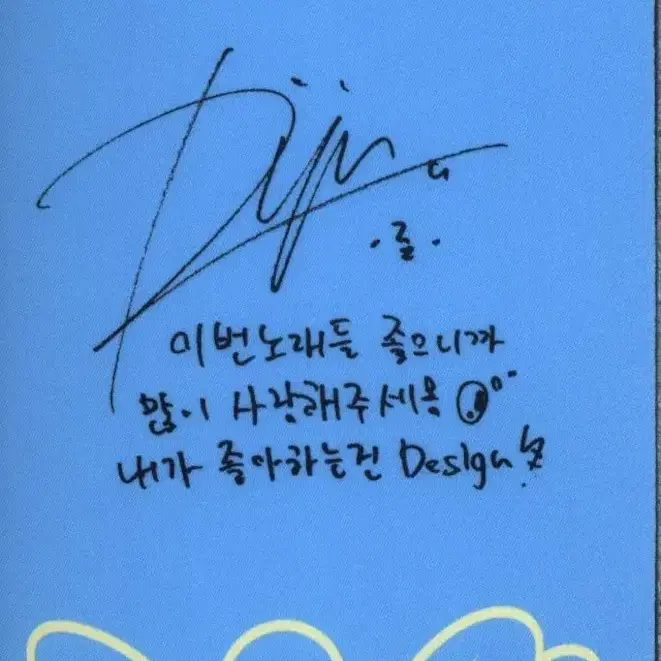 이번노래들 좋으니까
많이 사랑해주세용
내가 좋아하는건 Design